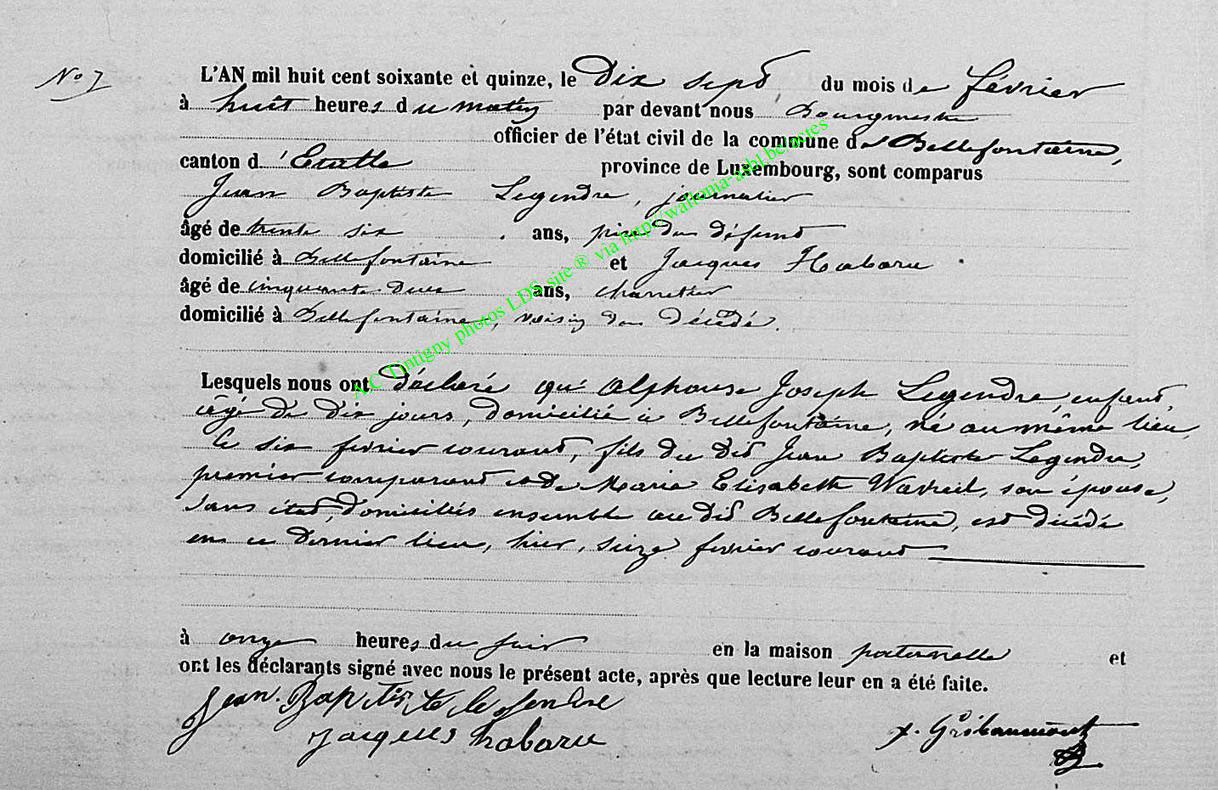 No 7
L'AN mil huit cent soixante et quinze, le Dix sept du mois de février
à huit heures du matin par devant nous Bourgmestre
officier de l'état civil de la commune de Bellefontaine,
canton d'Etalle province de Luxembourg, sont comparus
Jean Baptiste Legendre, journalier
âgé de trente six ans, père du défunt
domicilié à Bellefontaine et Jacques Habaru
âgé de cinquante deux ans, charretier
domicilié à Bellefontaine, voisin du décédé.
Lesquels nous ont déclaré qu'Alphonse Joseph Legendre, enfant,
âgé de dix jours, domicilié à Bellefontaine, né au même lieu,
le six février courant, fils du dit Jean Baptiste Legendre,
premier comparant et de Marie Elisabeth Wavreil, son épouse,
sans état, domiciliés ensemble au dit Bellefontaine, est décédé
en ce dernier lieu, hier, seize février courant
à onze heures du soir en la maison paternelle et
ont les déclarants signé avec nous le présent acte, après que lecture leur en a été faite.
Jean Baptiste legendre
jacques habaru
Gribaumont
A.C. Tintigny photos LDS site ® via http://waltania-asbl.be/actes